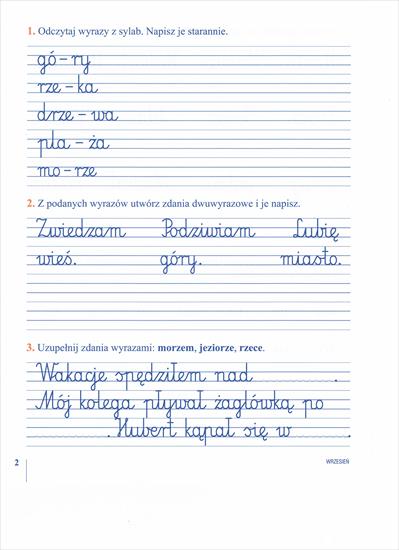 1. Odczytaj wyrazy z sylab. Napisz je starannie.
gó – ry
rze – ka
drze – wa
pla – ża
mo – rze
2. Z podanych wyrazów utwórz zdania dwuwyrazowe i je napisz.
Zwiedzam Podziwiam Lubię
wieś. góry. miasto.
3. Uzupełnij zdania wyrazami: morzem, jeziorze, rzece.
Wakacje spędziłem nad .
Mój kolega pływał żaglówką po
. Hubert kąpał się w .
2 WRZESIEŃ